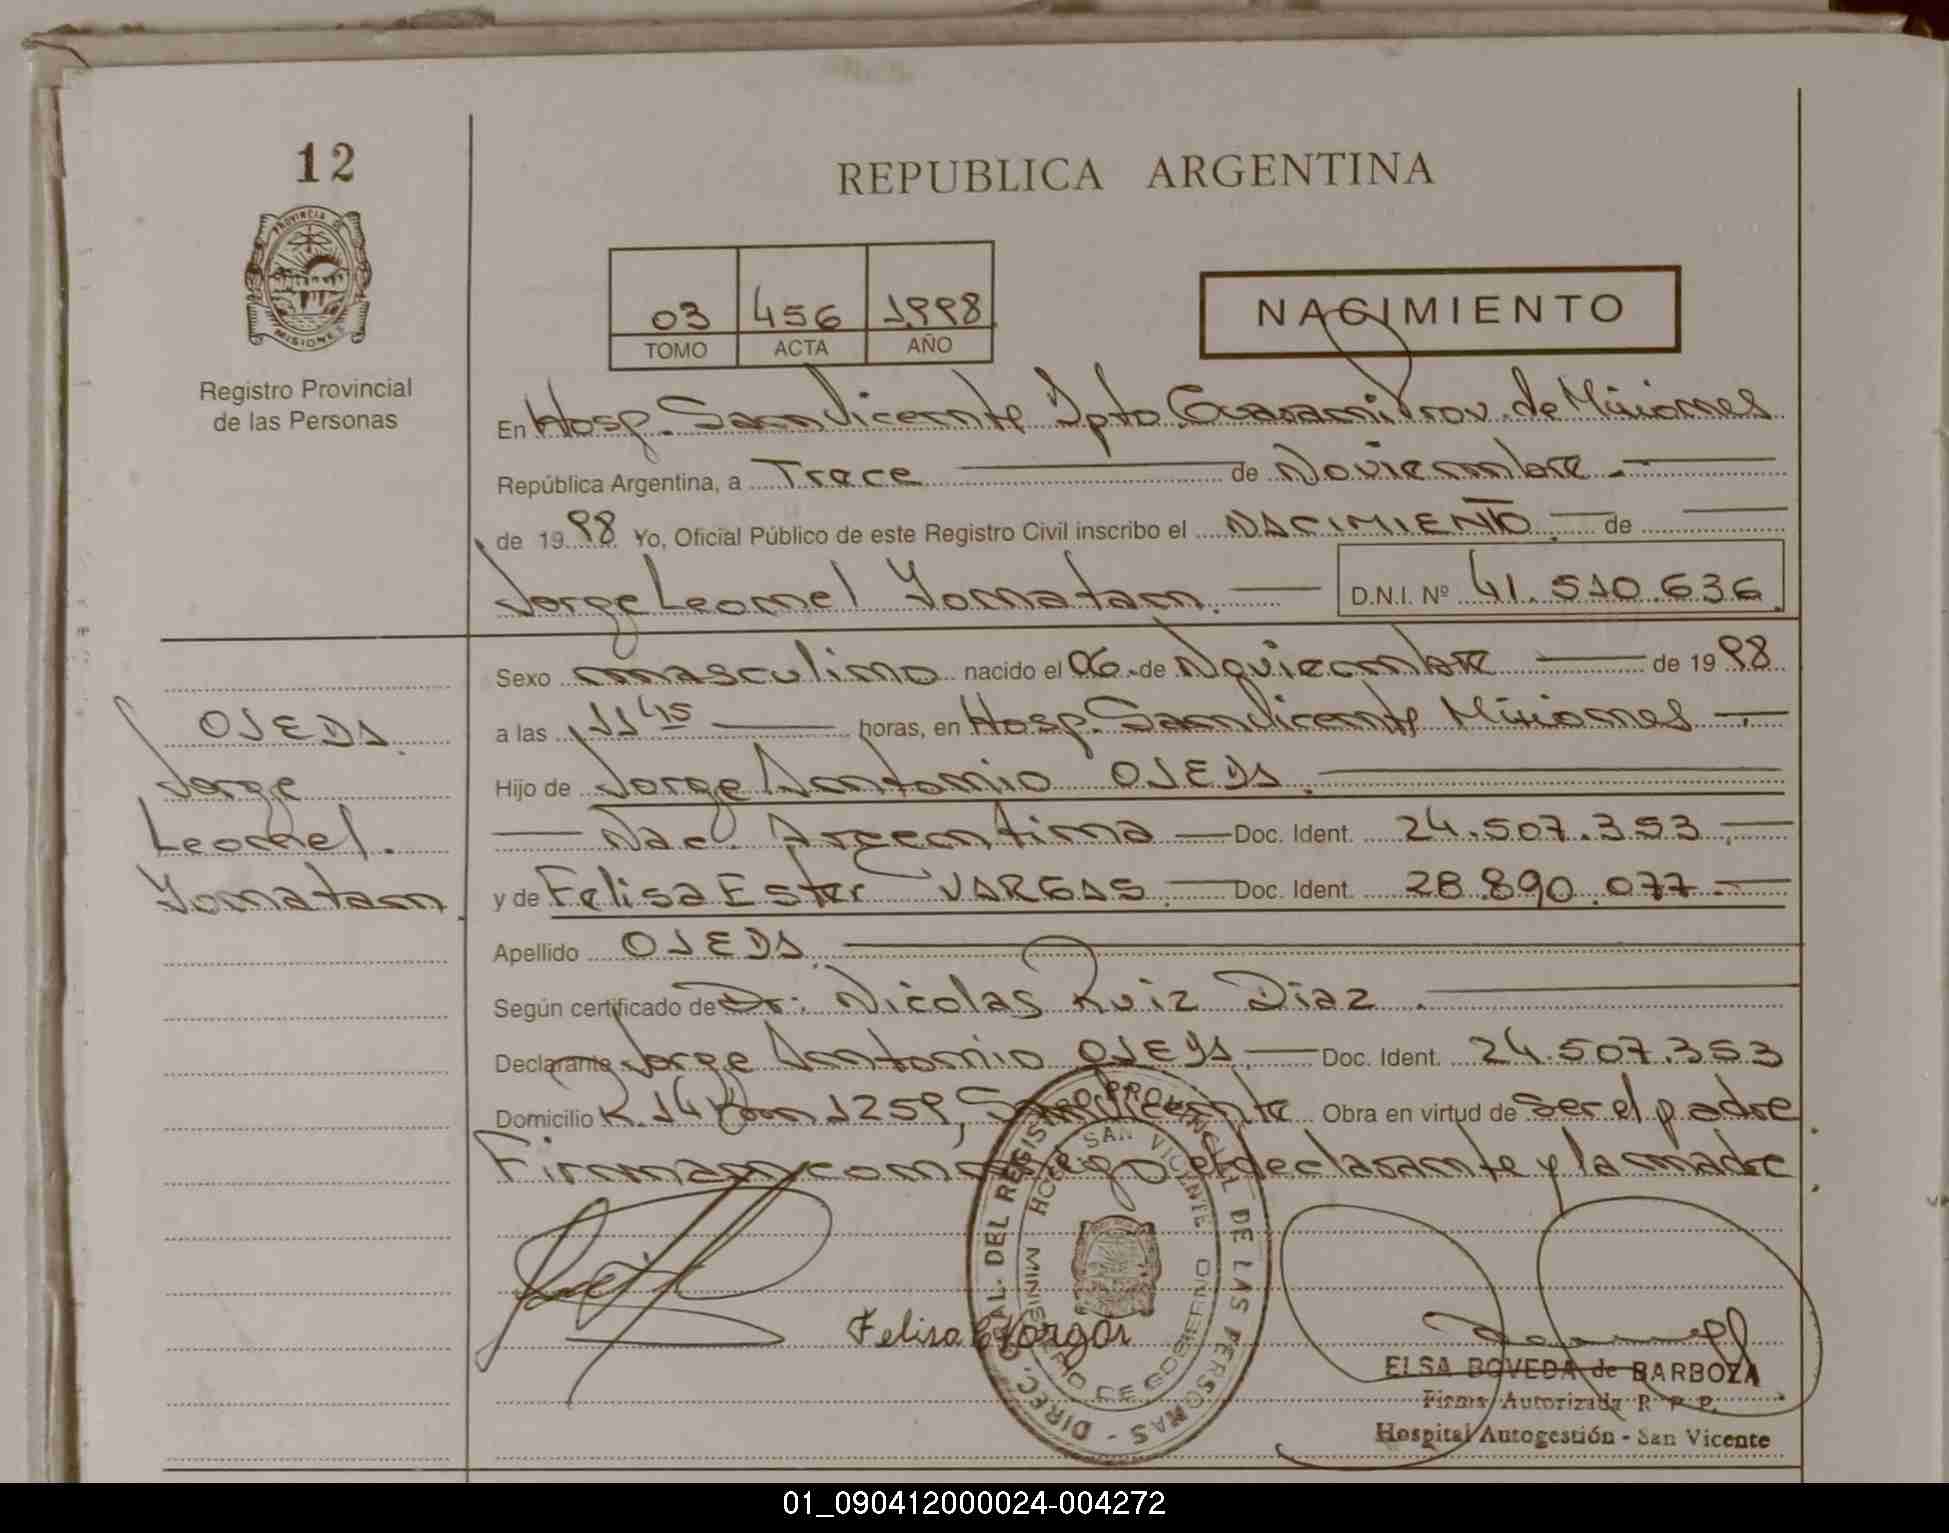 12
PROVINCIA DE
MISIONES
Registro Provincial
de las Personas
REPUBLICA ARGENTINA
03 456 1998
TOMO ACTA AÑO
NACIMIENTO
En Hosp. San Vicente Dpto Guarani Prov. de Misiones
República Argentina, a Trece de Noviembre.
de 1998 Yo, Oficial Público de este Registro Civil inscribo el NACIMIENTO. de
Jorge Leonel Yonatan. D.N.I. Nº 41.510.636
Sexo masculino nacido el 06 de Noviembre de 1998
a las 11 45 horas, en Hosp. San Vicente Misiones
Hijo de Jorge Antonio OJEDA.
Nac. Argentina Doc. Ident. 24.507.353
y de Felisa Ester VARGAS. Doc. Ident. 28.890.077
Apellido OJEDA.
Según certificado de Dr: Nicolas Ruiz Diaz.
Declarante Jorge Antonio OJEDA Doc. Ident. 24.507.353
Domicilio R.14 Km 1259, San Vicente Obra en virtud de ser el padre.
Firman conmigo el declarante y la madre.
OJEDA.
Jorge
Leonel.
Yonatan.
Felisa E Vargas
DIREC. GRAL. DEL REGISTRO PROVINCIAL DE LAS PERSONAS -
HOSP. SAN VICENTE
MINISTERIO DE GOBIERNO
ELSA BOVEDA de BARBOZA
Firma Autorizada R. P. P.
Hospital Autogestión - San Vicente
01_090412000024-004272